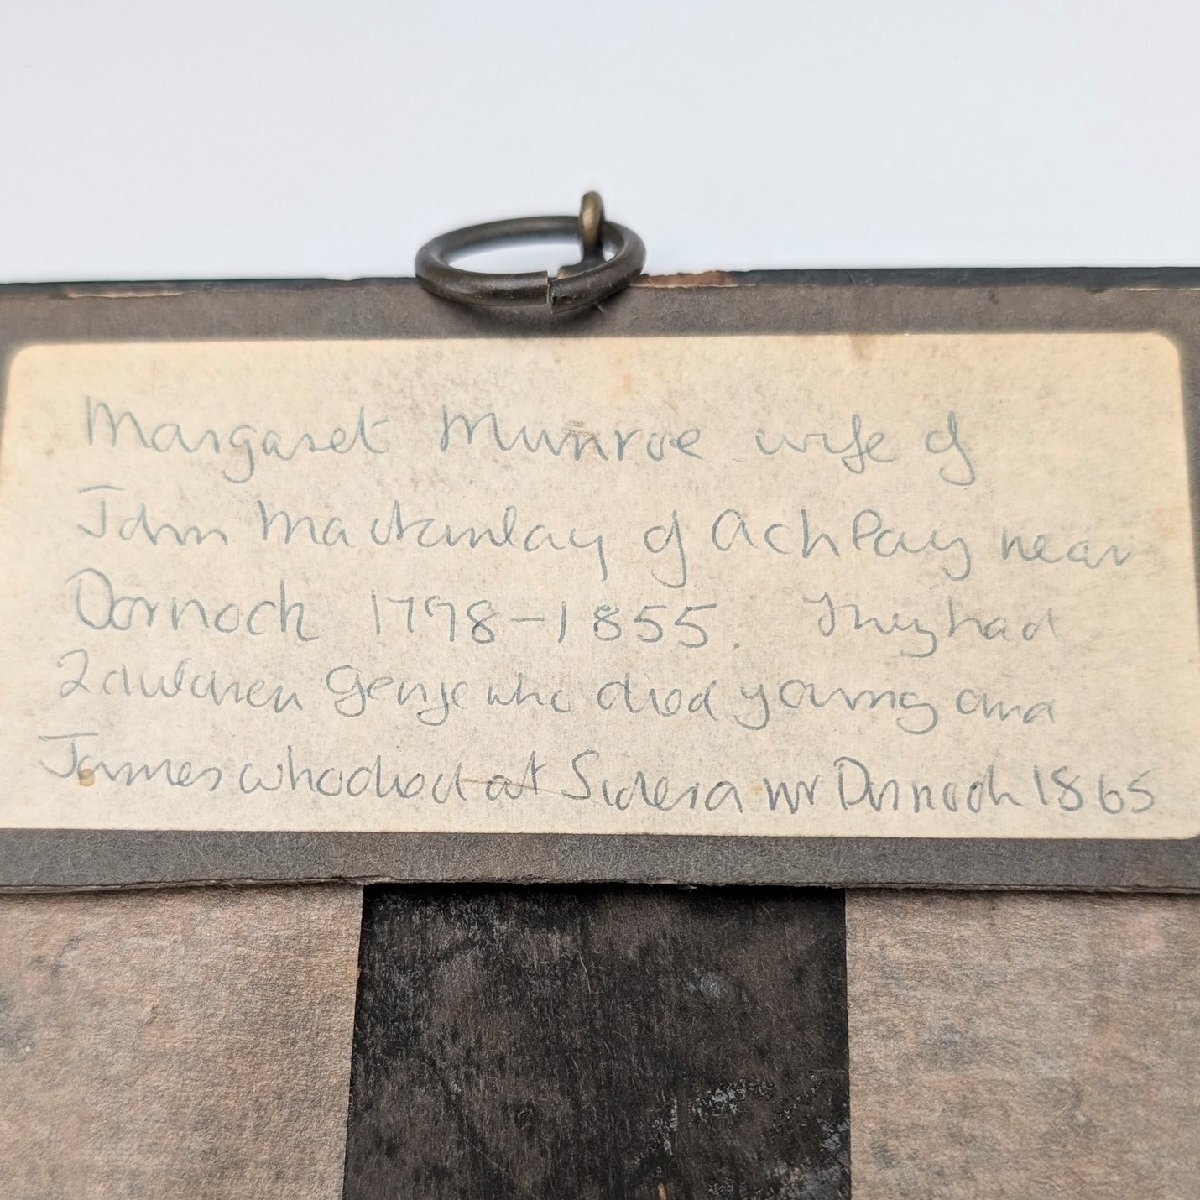 Margaret Munroe wife of
John Mackinlay of Achlay near
Dornoch 1798-1855. They had
2 children George who died young and
James who died at Sidera nr Dornoch 1865